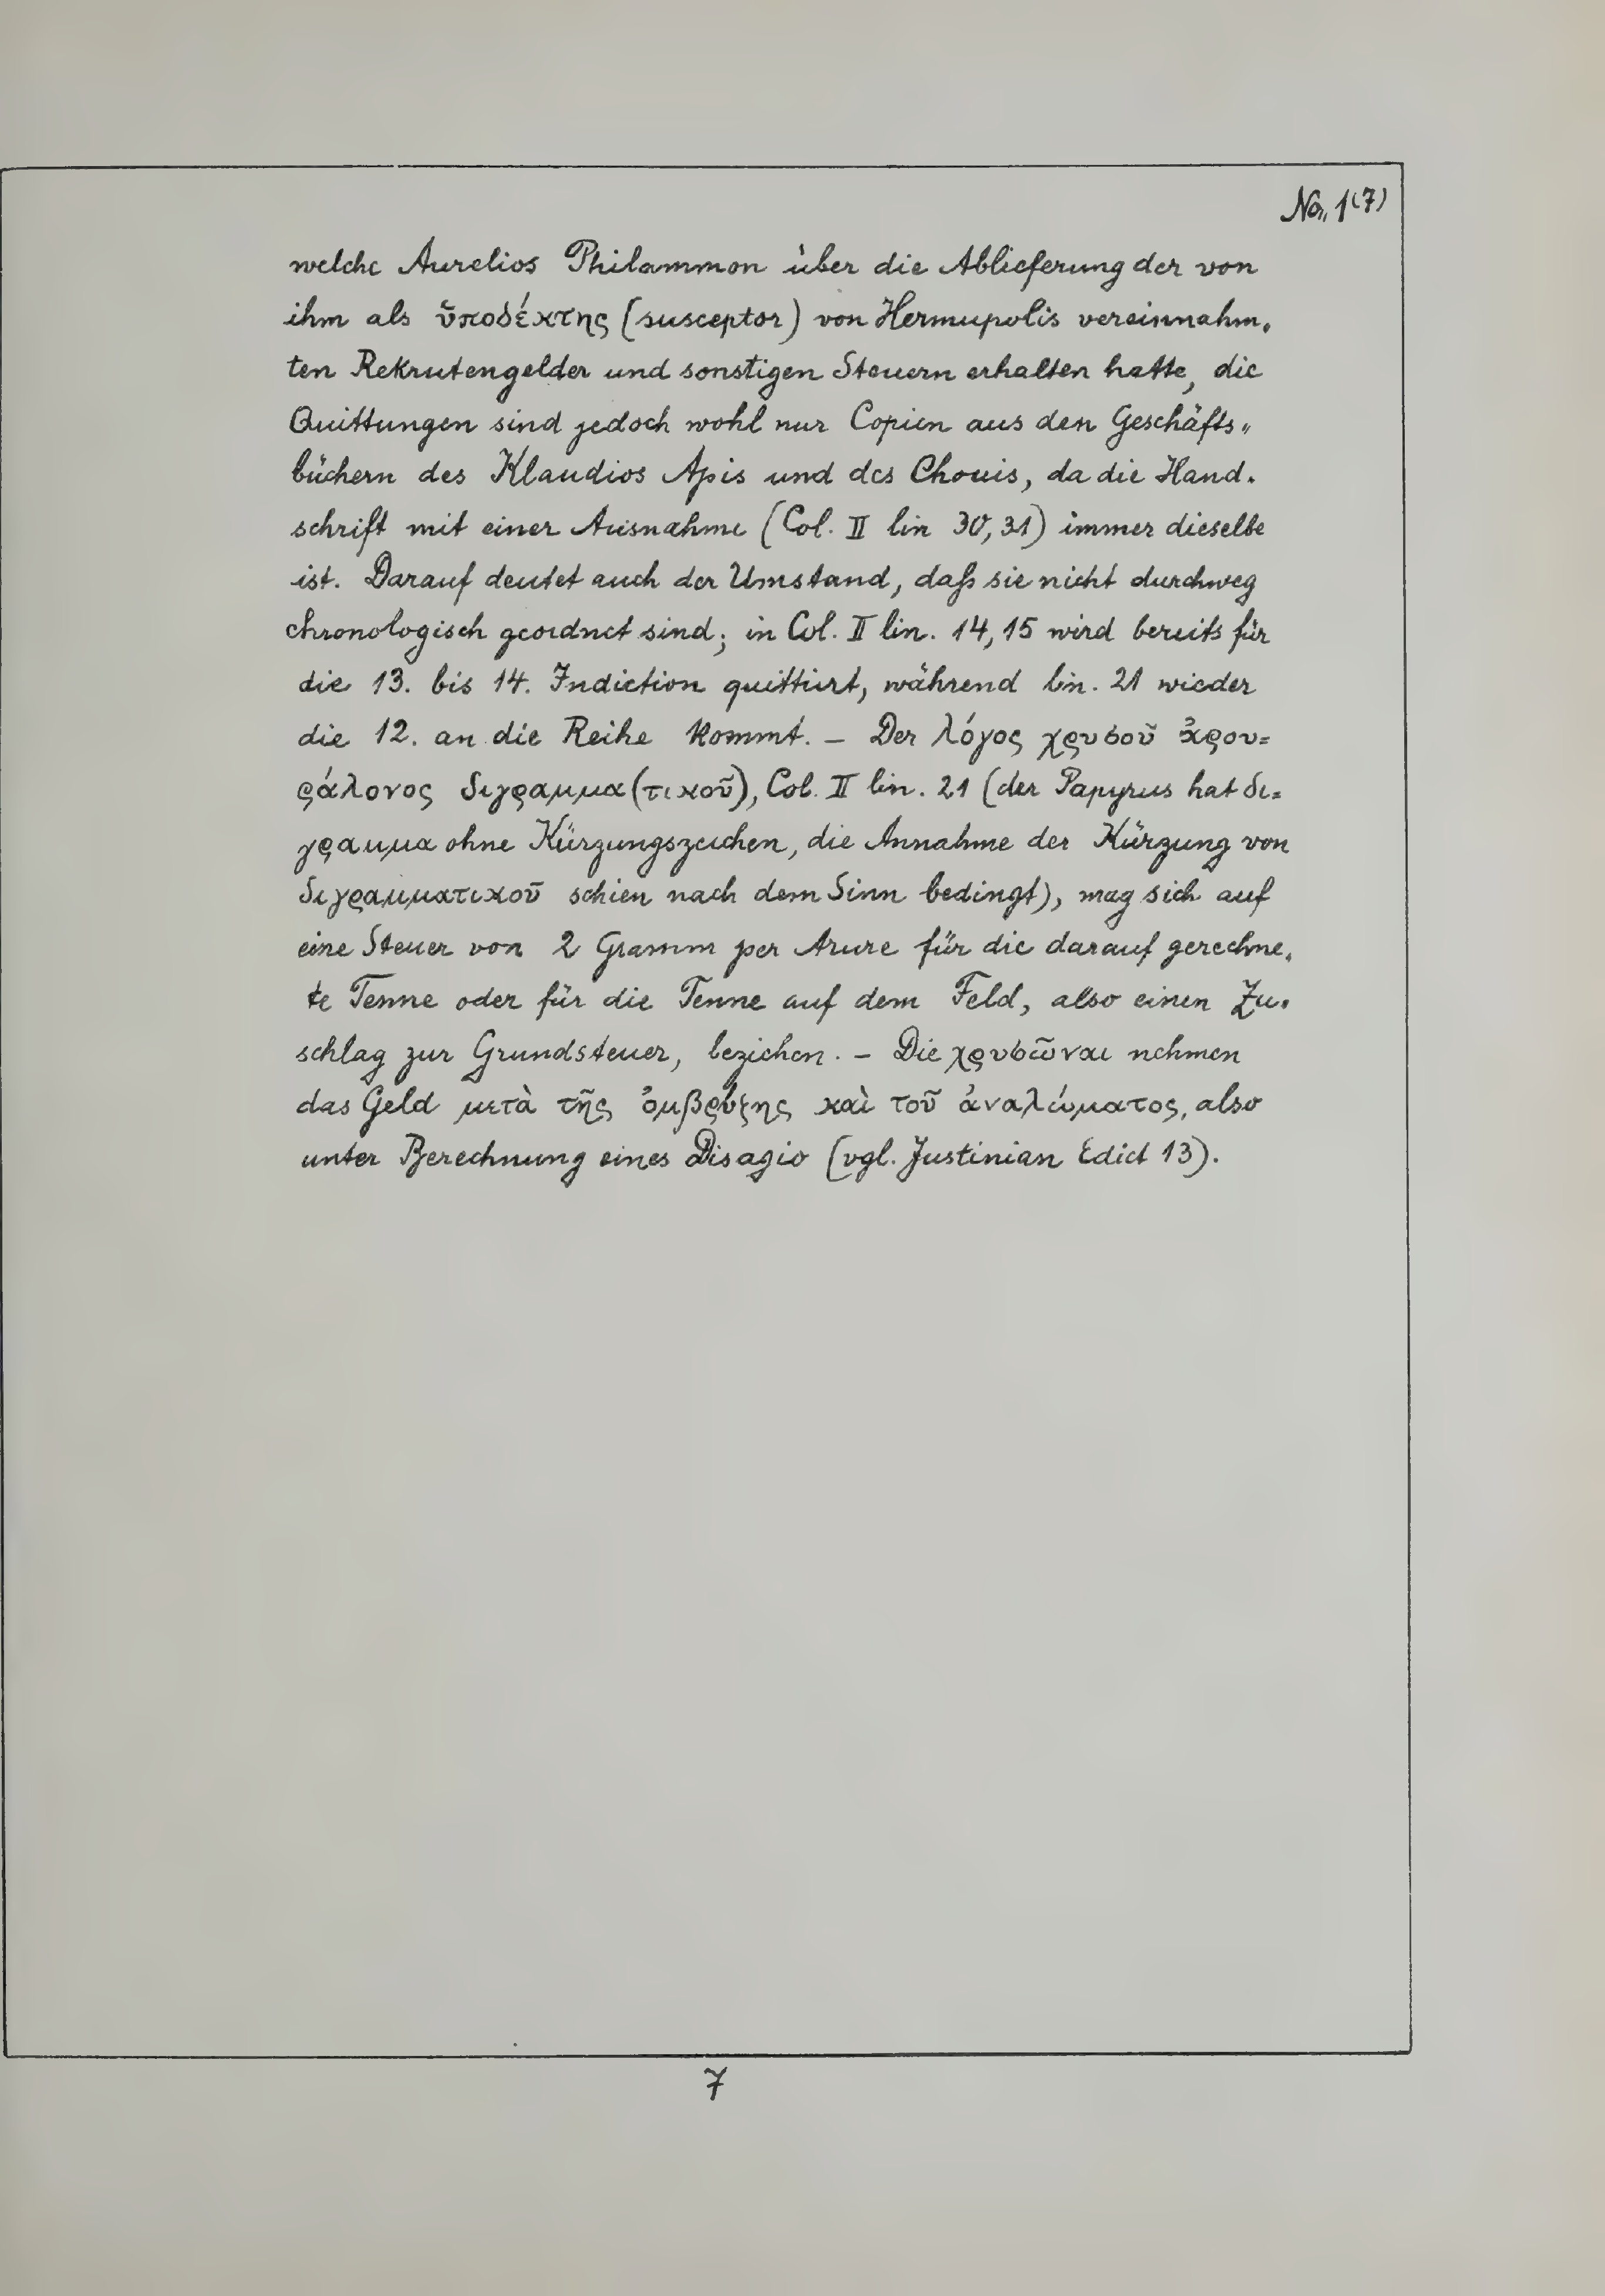 No. 1(7)
welche Aurelios Philammon über die Ablieferung der von
ihm als ὑποδέκτης (susceptor) von Hermupolis vereinnahm-
ten Rekrutengelder und sonstigen Steuern erhalten hatte, die
Quittungen sind jedoch wohl nur Copien aus den Geschäfts-
büchern des Klaudios Apis und des Chouis, da die Hand-
schrift mit einer Ausnahme (Col. II lin 30, 31) immer dieselbe
ist. Darauf deutet auch der Umstand, daß sie nicht durchweg
chronologisch geordnet sind; in Col. II lin. 14, 15 wird bereits für
die 13. bis 14. Indiction quittirt, während lin. 21 wieder
die 12. an die Reihe kommt. – Der λόγος χρυσοῦ ἀρου=
ράλονος διγραμμα(τικοῦ), Col. II lin. 21 (der Papyrus hat δι=
γραμμα ohne Kürzungszeichen, die Annahme der Kürzung von
διγραμματικοῦ schien nach dem Sinn bedingt), mag sich auf
eine Steuer von 2 Gramm per Arure für die darauf gerechne-
te Tenne oder für die Tenne auf dem Feld, also einen Zu-
schlag zur Grundsteuer, beziehen. – Die χρυσῶναι nehmen
das Geld μετὰ τῆς ὀμβρύζης καὶ τοῦ ἀναλώματος, also
unter Berechnung eines Disagio (vgl. Justinian Edict 13).
7